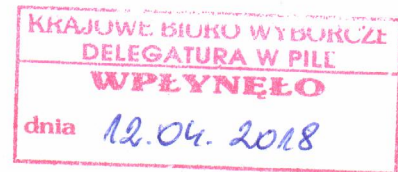 KRAJOWE BIURO WYBORCZE
DELEGATURA W PILE
WPŁYNĘŁO
dnia 12.04.2018